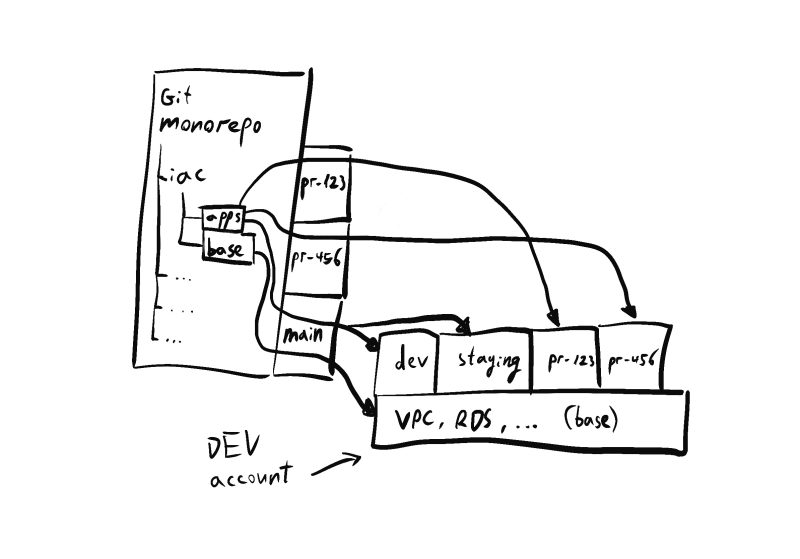 Git
monorepo
iac
apps
base
...
...
...
pr-123
pr-456
main
dev
staying
pr-123
pr-456
VPC, RDS, ... (base)
DEV
account